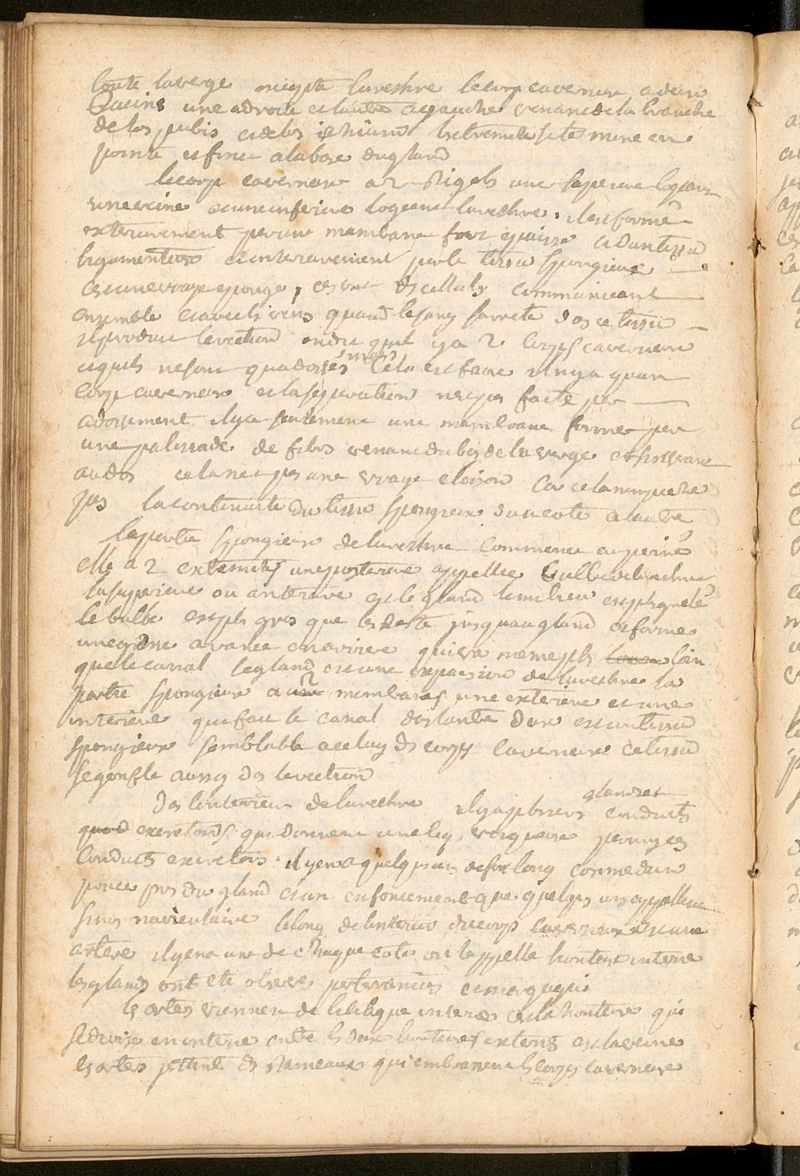 toute la verge excepté lurethre le corp caverneux a deux
Racins une a droite et lautre a gauche venant de la branche
de los pubis et de los ischium lextremité se termine en
pointe et finit a la base du gland
le corp caverneux a 2 Rigols une superieure logeant
une veine et une inferieure logeant lurethre. il est formé
exterieurement par une membrane fort epaisse et dun tissu
ligamenteux et interieurement par le tissu spongieux
cest une vraye eponge, ce sont des cellules communicant
ensemble et avec les veins quand le sang sarrete dans ce tissu
il produit lerection on dit quil y a 2 corps caverneux
lesquels ne sont quadossés mais cela est faux il ny a quun
corp caverneux et la separation nest pas faite par
adossement il y a seulement une membrane formée par
une palissade de fibres venant du bas de la verge et passant
au dos cela nest pas une vraye cloison car cela nempeche
pas la continuité du tissu spongieux dun coté a lautre
la partie spongieuse de lurethre commence au periné
elle a 2 extremités une posterieure appellée bulbe de lurethre
la superieure ou anterieure est le gland le milieu
le bulbe est plus gros que le reste jusquau gland et forme
une avance en arriere qui va meme plus loin
que le canal le gland est une expansion de lurethre la
partie spongieuse a 2 membranes une exterieure et une
interieure qui fait le canal dans lentre deux est un tissu
spongieux semblable a celuy des corps caverneux ce tissu
se gonfle aussy dans lerection
Dans linterieur de lurethre il y a plusieurs glandes conduits
excretoirs qui donnent une liq. visqueuse par ces
conduits excretoirs. il y en a quelques uns de fort long comme dun
pouce pres du gland est un enfoncement que quelqes uns appellent
sinus naviculaire le long de linterieur du corp caverneux est une
artere il y en a une de chaque coté on lappelle honteuse interne
les glands ont eté
les arteres viennent de liliaque interne est la honteuse qui
se divise en interne entre les deux honteuses externes est la veine
les arteres jettent des Rameaux qui embrassent le corps caverneux